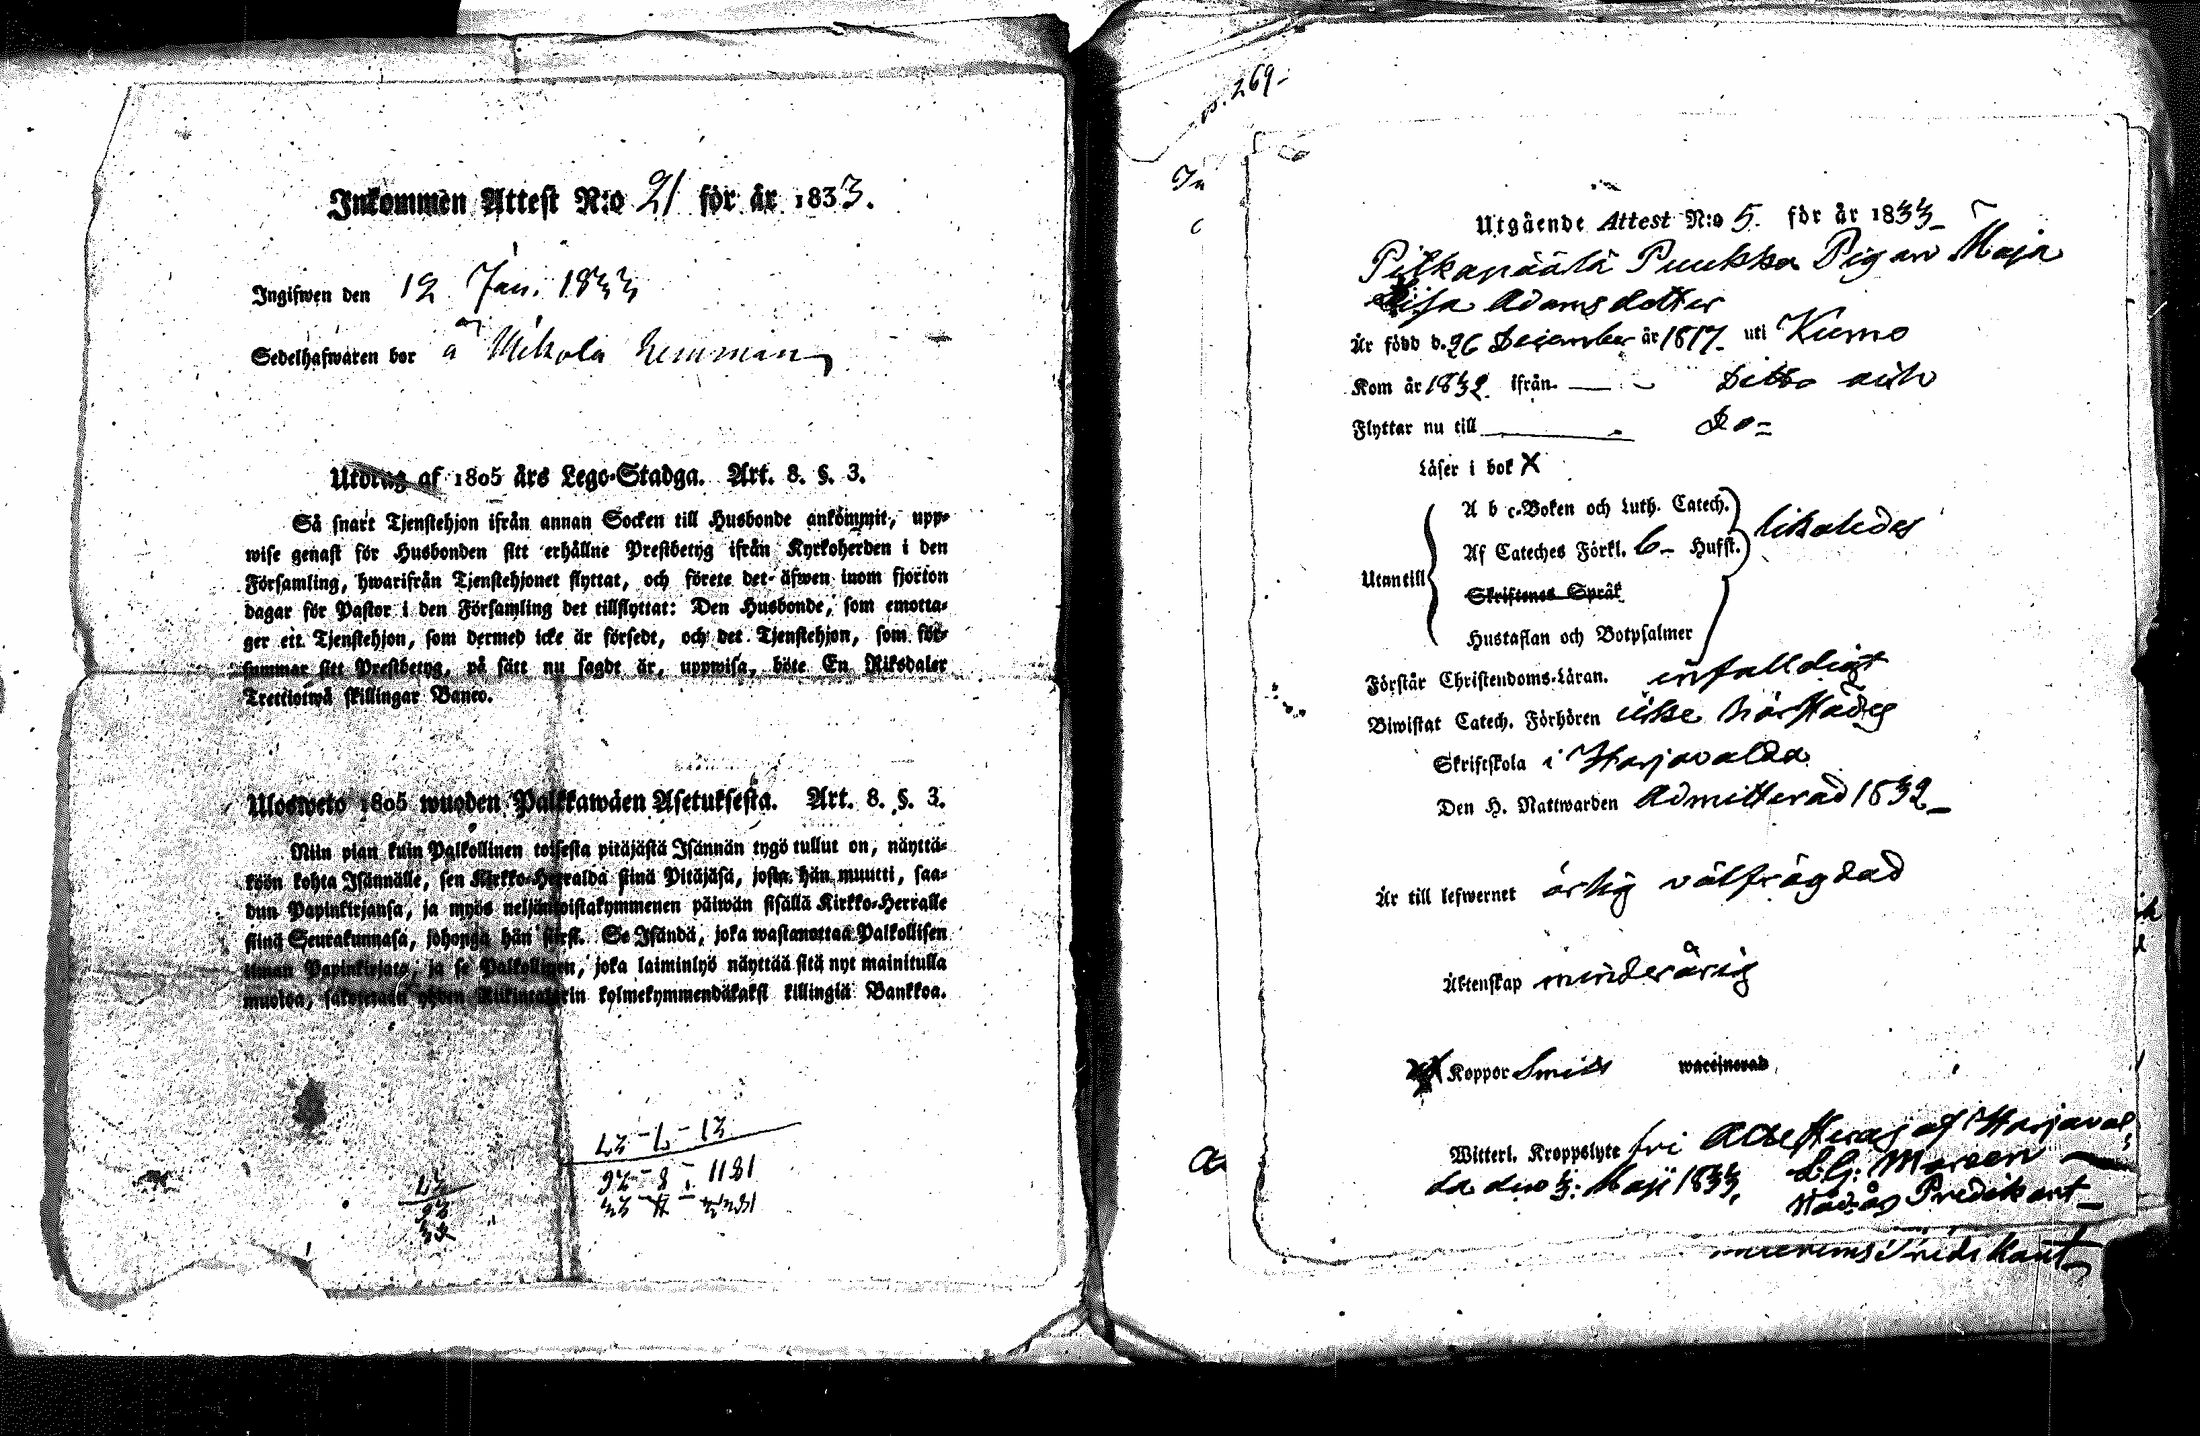 Inkommen Attest N:o 21 för år 1833.
Ingifwen den 12 Jan. 1833
Sedelhafwaren bor å Mikola hemman
Utdrag af 1805 års Lego-Stadga. Art. 8. §. 3.
Så snart Tjenstehjon ifrån annan Socken till Husbonde ankommit, upp-
wise genast för Husbonden sitt erhållne Prestbetyg ifrån Kyrkoherden i den
Församling, hwarifrån Tjenstehjonet flyttat, och förete det äfwen inom fjorton
dagar för Pastor i den Församling det tillflyttat: Den Husbonde, som emotta-
ger ett Tjenstehjon, som dermed icke är försedt, och det Tjenstehjon, som för-
summar sitt Prestbetyg, på sätt nu sagdt är, uppwisa, böte En Riksdaler
Trettiotwå skillingar Banco.
Ulosweto 1805 wuoden Palkkawäen Asetuksesta. Art. 8. §. 3.
Niin pian kuin Palkollinen toisesta pitäjästä Isännän tygö tullut on, näyttä-
köön kohta Isännälle, sen Kirkko-Herralda siinä Pitäjäsä, josta hän muutti, saa-
dun Papinkirjansa, ja myös neljäntoistakymmenen päiwän sisällä Kirkko-Herralle
siinä Seurakunnasa, johonga hän siirsi. Se Isändä, joka wastanottaa Palkollisen
ilman Papinkirjata, ja se Palkollinen, joka laiminlyö näyttää sitä nyt mainitulla
muotoa, sakotetaan yhden Riikintalarin kolmekymmendäkaksi killingiä Bankkoa.
27 - 7 - 15
26 - 8 - 1811
27
26
p. 269-
Utgående Attest N:o 5. för år 1833
Pitkäpäälä Puukka Pigan Maja
Lisa Adamsdotter
Är född d. 26 December år 1817. uti Kumo
Kom år 1832. ifrån. Ditto och
Flyttar nu till Do=
Läser i bok X
A b c-Boken och Luth. Catech.
Af Cateches Förkl. 6- Hufst. likaledes
Utantill
Skriftenes Språk
Hustaflan och Botpsalmer
Förstår Christendoms-Läran. enfalldigt
Biwistat Catech. Förhören icke härstädes
Skriftskola i Harjavalda
Den H. Nattwarden Admitterad 1832
Är till lefwernet ärlig välfrägdad
Äktenskap minderårig
Koppor waccinerad
Witterl. Kroppslyte fri Attesteras af Harjaval
da den 3: Maji 1833.
Nåd:års Predikant
Predikant